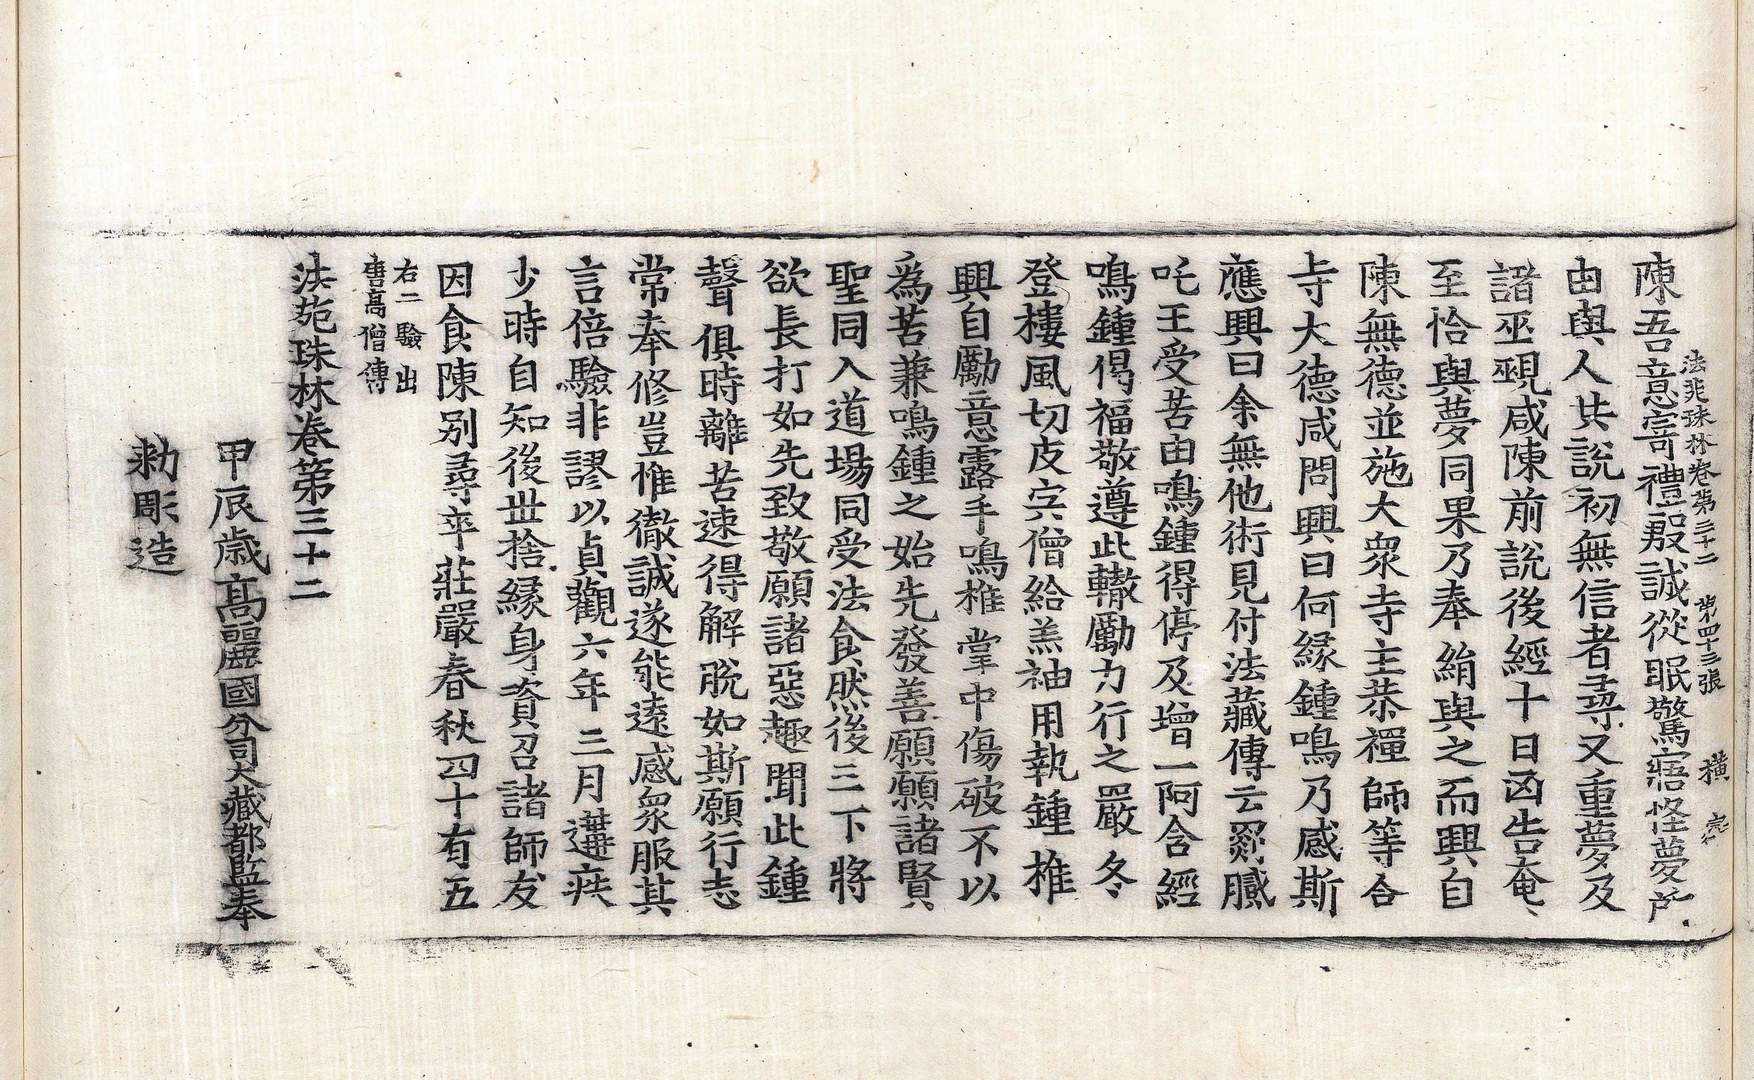 陳吾意寄禮殷誠從眠驚寤怪夢所
法苑珠林卷第三十二 第四十三張 横
由與人共說初無信者尋又重夢及
諸巫覡咸陳前說後經十日凶告奄
至恰與夢同果乃奉絹與之而興自
陳無德並施大衆寺主恭禪師等合
寺大德咸問興曰何縁鍾鳴乃感斯
應興曰余無他術見付法藏傳云罽膩
吒王受苦由鳴鍾得停及增一阿含經
鳴鍾偈福敬遵此轍勵力行之嚴冬
登樓風切皮宍僧給羔袖用執鍾椎
興自勵意露手鳴椎掌中傷破不以
爲苦兼鳴鍾之始先發善願願諸賢
聖同入道場同受法食然後三下將
欲長打如先致敬願諸惡趣聞此鍾
聲俱時離苦速得解脫如斯願行志
常奉修豈惟徹誠遂能遠感衆服其
言倍驗非謬以貞觀六年三月遘疾
少時自知後世捨縁身資召諸師友
因食陳別尋卒莊嚴春秋四十有五
右二驗出
唐高僧傳
法苑珠林卷第三十二
甲辰歳高麗國分司大藏都監奉
勅彫造